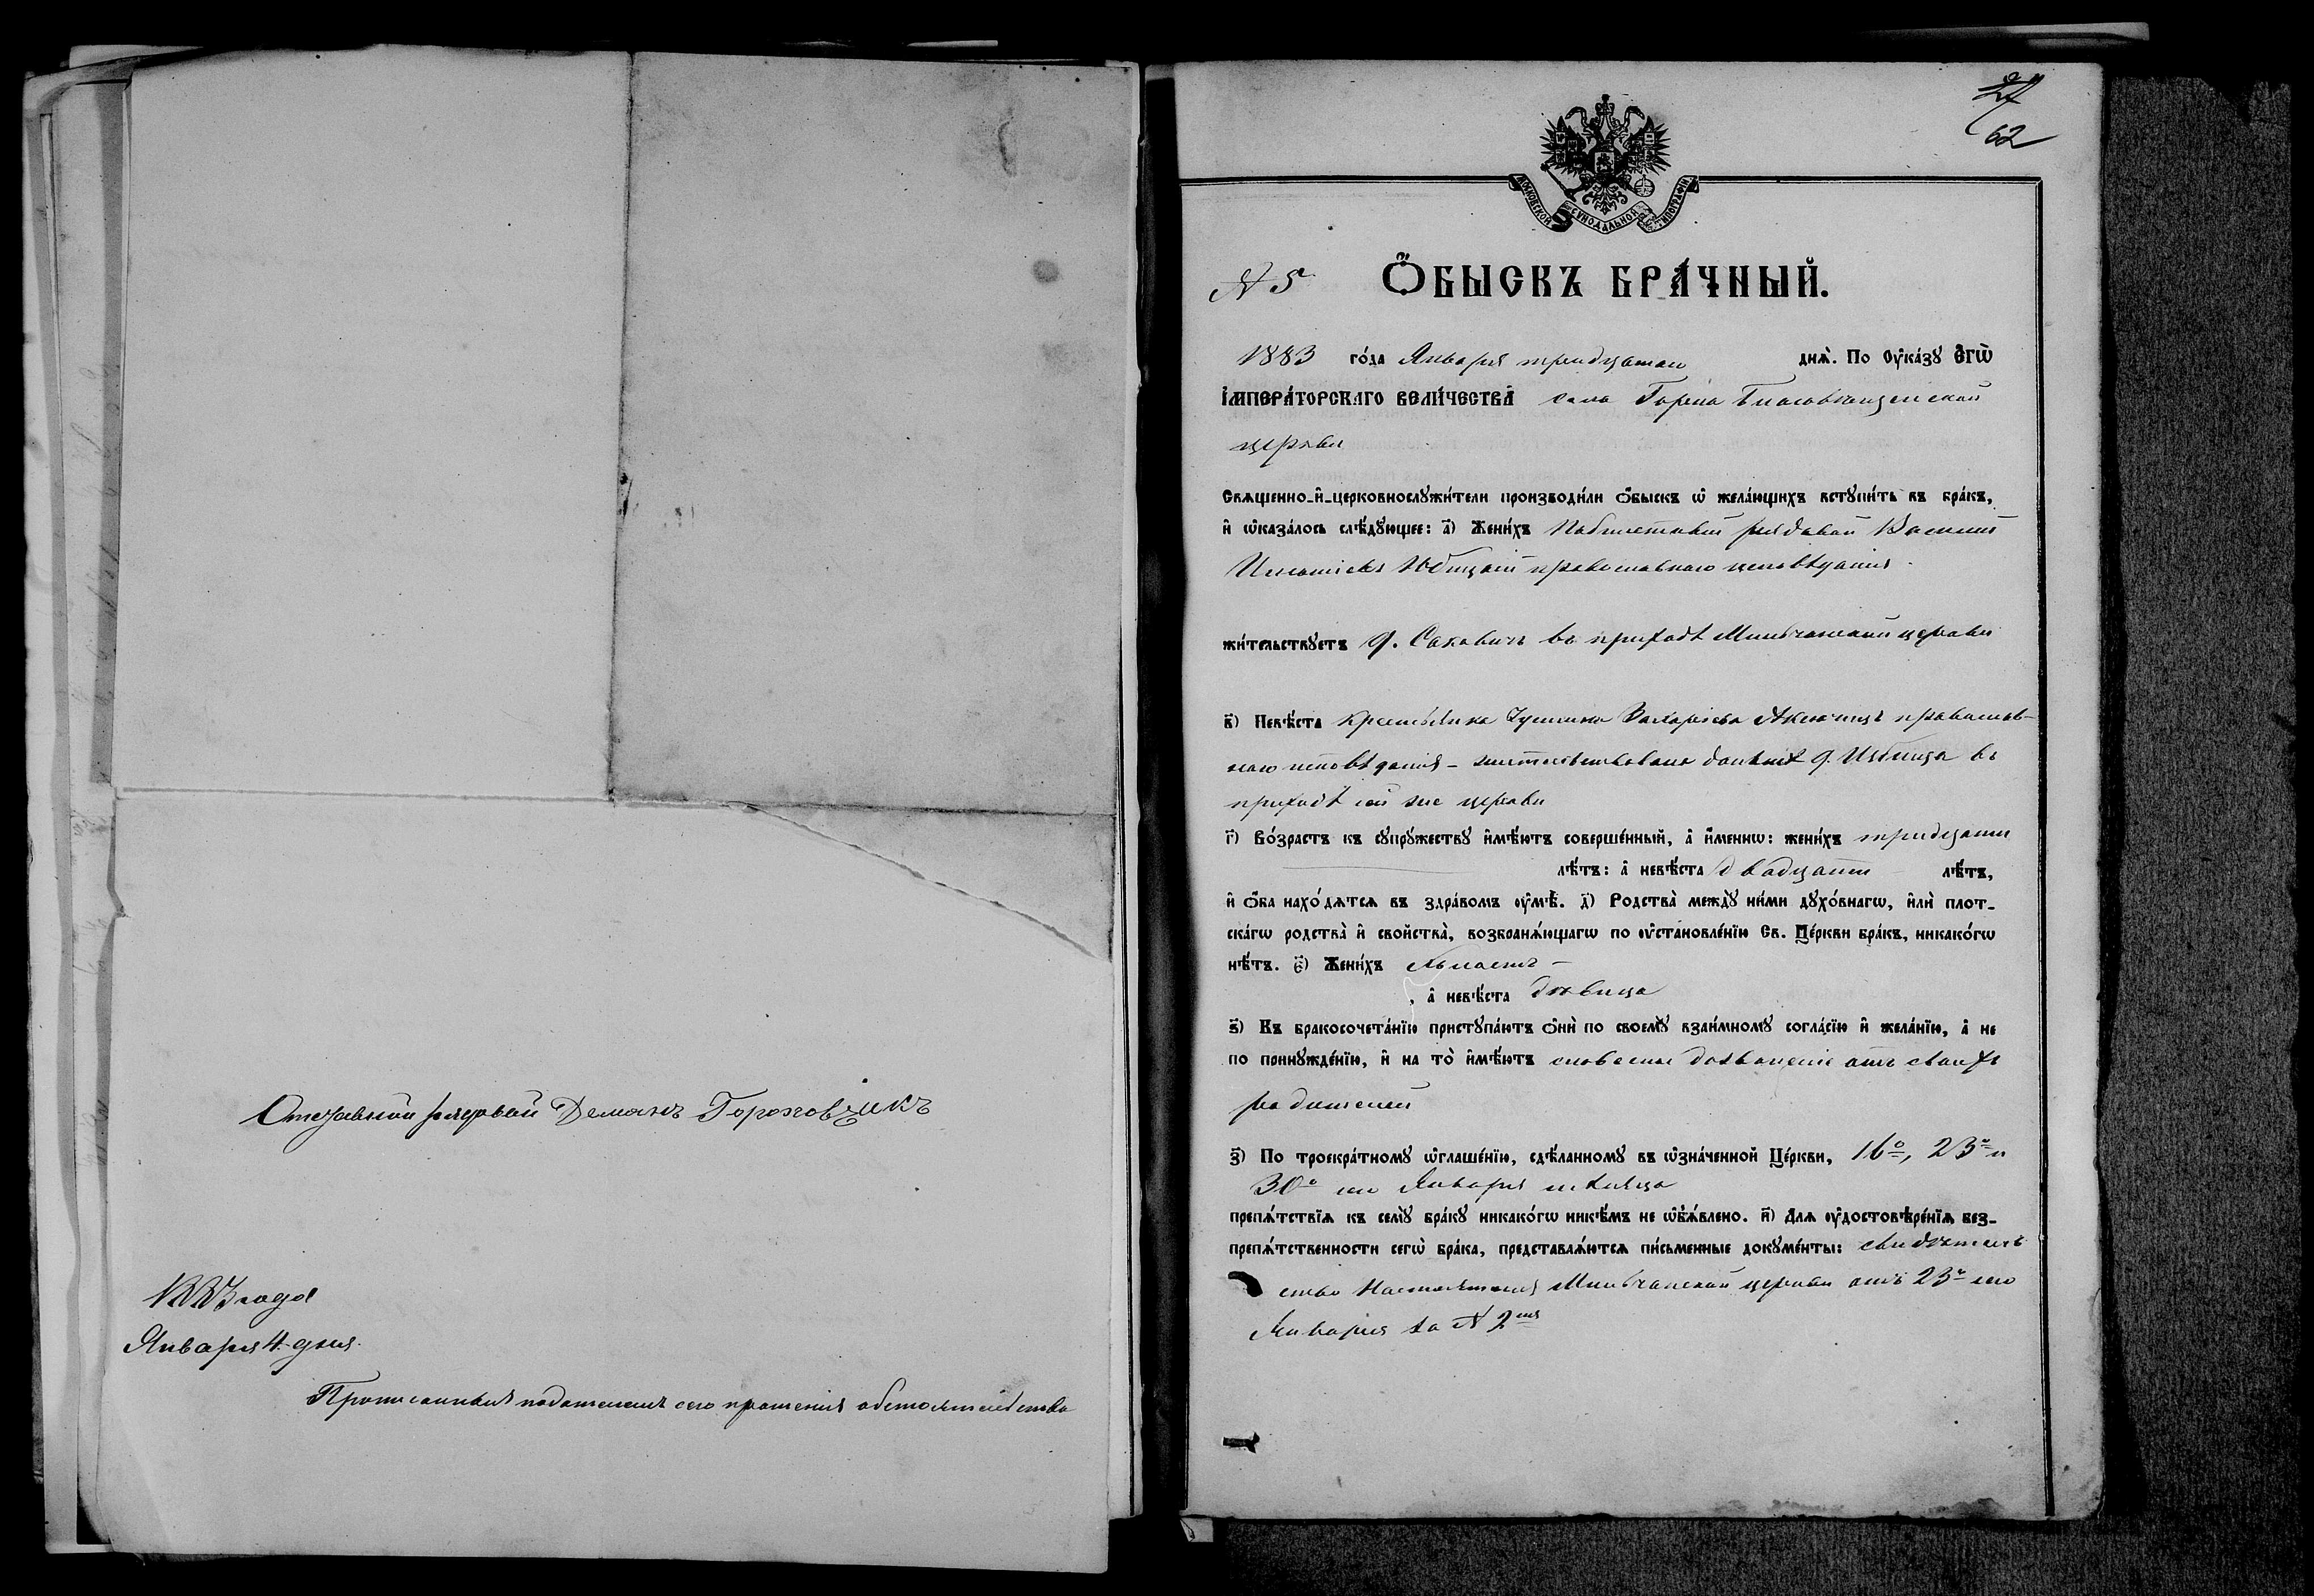 Отставной рядовой Демянъ Гороховчикъ
1883 года
Января 4 дня.
Прописанныя подателемъ сего прошенія обстоятельства
27
62
МОСКОВСКОЙ СѴНОДАЛЬНОЙ ТИПОГРАФІИ
N 5
Ѻ҆БЫСКЪ БРА́ЧНЫЙ.
1883 го́да Января тридцатаго днѧ̀. По ѹ҆ка́зꙋ Є҆гѡ̀
І҆мпера́торскаго вели́чества села Благовѣщенской
церкви
Свѧщенно-и҆-церковнослꙋжи́тели производи́ли ѻ҆́быскъ ѡ҆ жела́ющихъ вступи́ть въ бра́къ,
и҆ ѡ҆каза́лось слѣ́дꙋющее: а҃) Жени́хъ рядовой Василій
Игнатіевъ православнаго исповѣданія.
жи́тельствꙋетъ д. Саковичъ въ приходѣ церкви
в҃) Невѣ́ста крестьянка Захаріева православ-
наго исповѣданія – д. Избища въ
приходѣ сей же церкви
г҃) Во́зрастъ къ сꙋпрꙋ́жествꙋ и҆мѣ́ютъ соверше́нный, а҆ и҆́меннѡ: жени́хъ тридцати
лѣ́тъ: а҆ невѣ́ста двадцати лѣ́тъ,
и҆ ѻ҆́ба нахо́дѧтсѧ въ здра́вомъ ѹ҆мѣ̀. д҃) Родства̀ междꙋ̀ ни́ми дꙋхо́внагѡ, и҆лѝ плот-
ска́гѡ родства̀ и҆ сво́йства̀, возбранѧ́ющагѡ по ѹ҆становле́нїю Св. Це́ркви бра́къ, никако́гѡ
нѣ́тъ. є҃) Жени́хъ холостъ –
, а҆ невѣ́ста дѣвица
ѕ҃) Къ бракосочета́нїю пристꙋпа́ютъ ѻ҆нѝ по своемꙋ̀ взаи́мномꙋ согла́сїю и҆ жела́нїю, а҆ не
по принꙋжде́нїю, и҆ на то̀ и҆мѣ́ютъ словесное дозволеніе отъ своихъ
родителей
з҃) По троекра́тномꙋ ѡ҆глаше́нїю, сдѣ́ланномꙋ въ ѡ҆зна́ченной Це́ркви, 16º, 23º и
30º сего Января мѣсяца
препѧ́тствїѧ къ семꙋ̀ бра́кꙋ никако́гѡ никѣ́мъ не ѡ҆б̾ѧ́влено. и҃) Для ѹ҆достовѣре́нїѧ без-
препѧ́тственности сегѡ̀ бра́ка, представлѧ́ютсѧ пи́сьменные докꙋме́нты: свидѣтель-
ство Настоятеля церкви отъ 23º сего
Января за N 2мъ